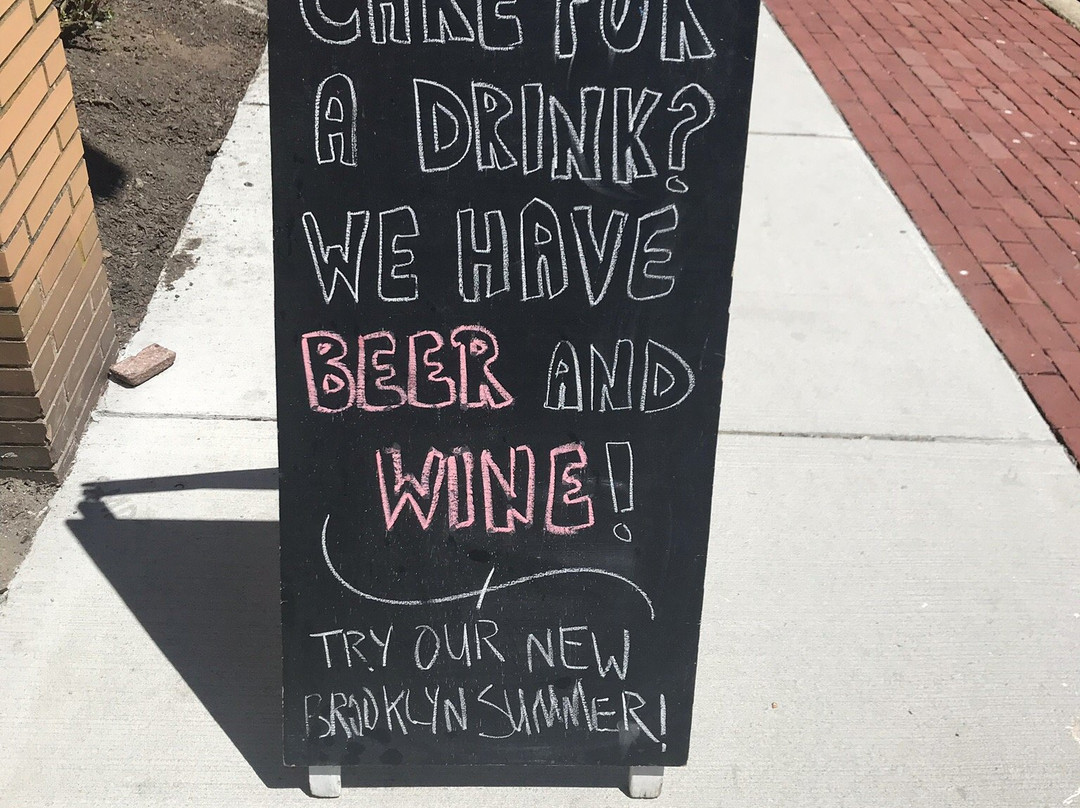 CARE FOR
A DRINK?
WE HAVE
BEER AND
WINE!
TRY OUR NEW
BROOKLYN SUMMER!